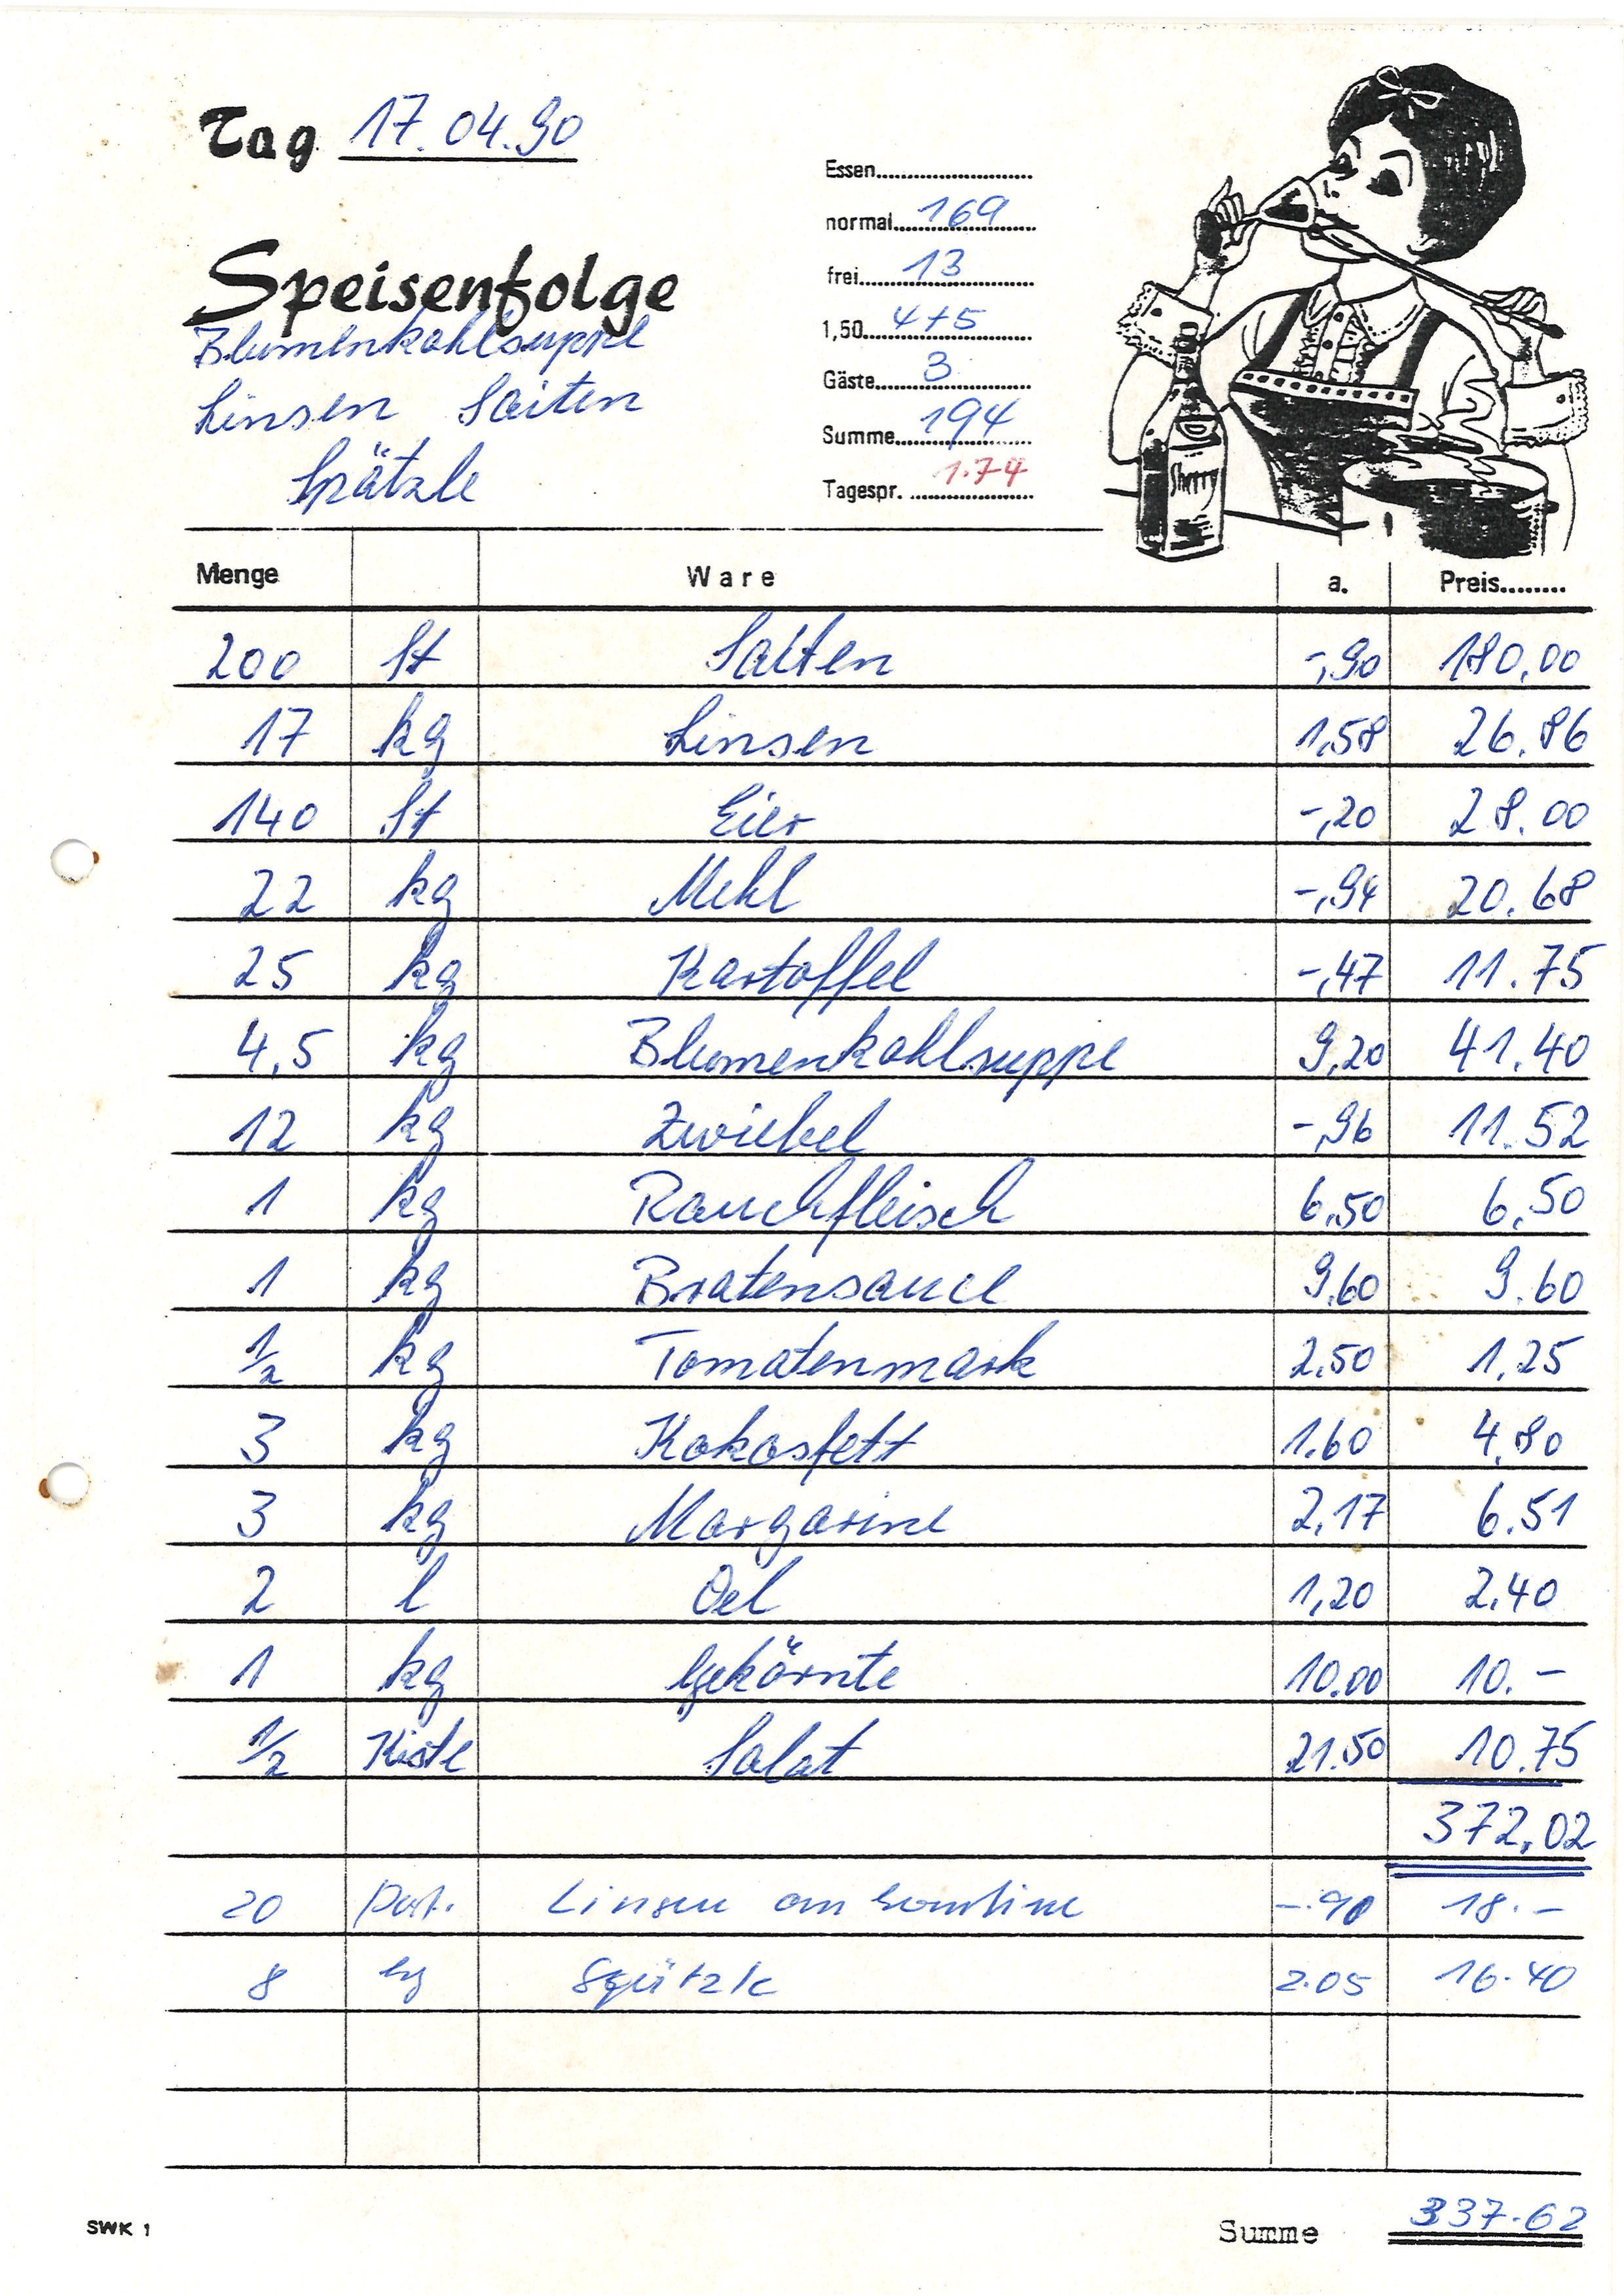 Tag 17.04.90
Essen
normal 169
frei 13
1,50 4+5
Gäste 3
Summe 194
Tagespr. 1.74
Speisenfolge
Blumenkohlsuppe
Linsen Saiten
Spätzle
Sherry
Menge Ware a. Preis
200 St Saiten -,90 180,00
17 kg Linsen 1,58 26.86
140 St Eier -,20 28.00
22 kg Mehl -,94 20.68
25 kg Kartoffel -,47 11.75
4,5 kg Blumenkohlsuppe 9,20 41.40
12 kg Zwiebel -,96 11.52
1 kg Rauchfleisch 6,50 6,50
1 kg Bratensauce 9.60 9.60
1/2 kg Tomatenmark 2,50 1,25
3 kg Kokosfett 1.60 4,80
3 kg Margarine 2,17 6.51
2 l Oel 1,20 2,40
1 kg Gekörnte 10.00 10.-
1/2 Kiste Salat 21.50 10.75
372,02
20 Port. Linsen an -.90 18.-
8 kg Spätzle 2.05 16.40
SWK 1
Summe 337.62